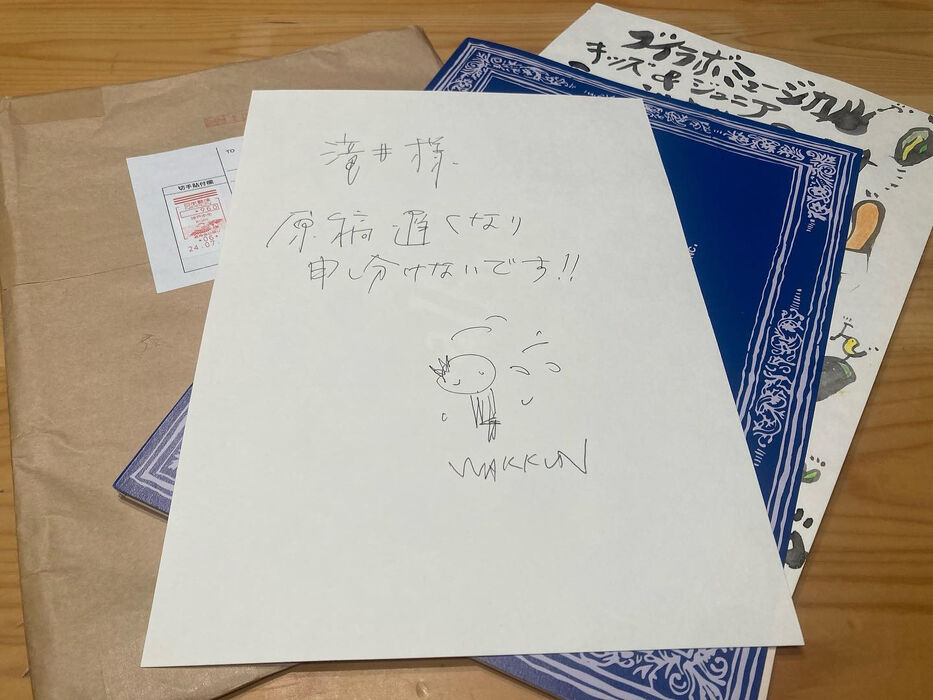 滝井様
原稿遅くなり
申し分けないです!!
WAKKUN
TO
切手貼付欄
ミュージカル
キッズ & ジュニア
NC.